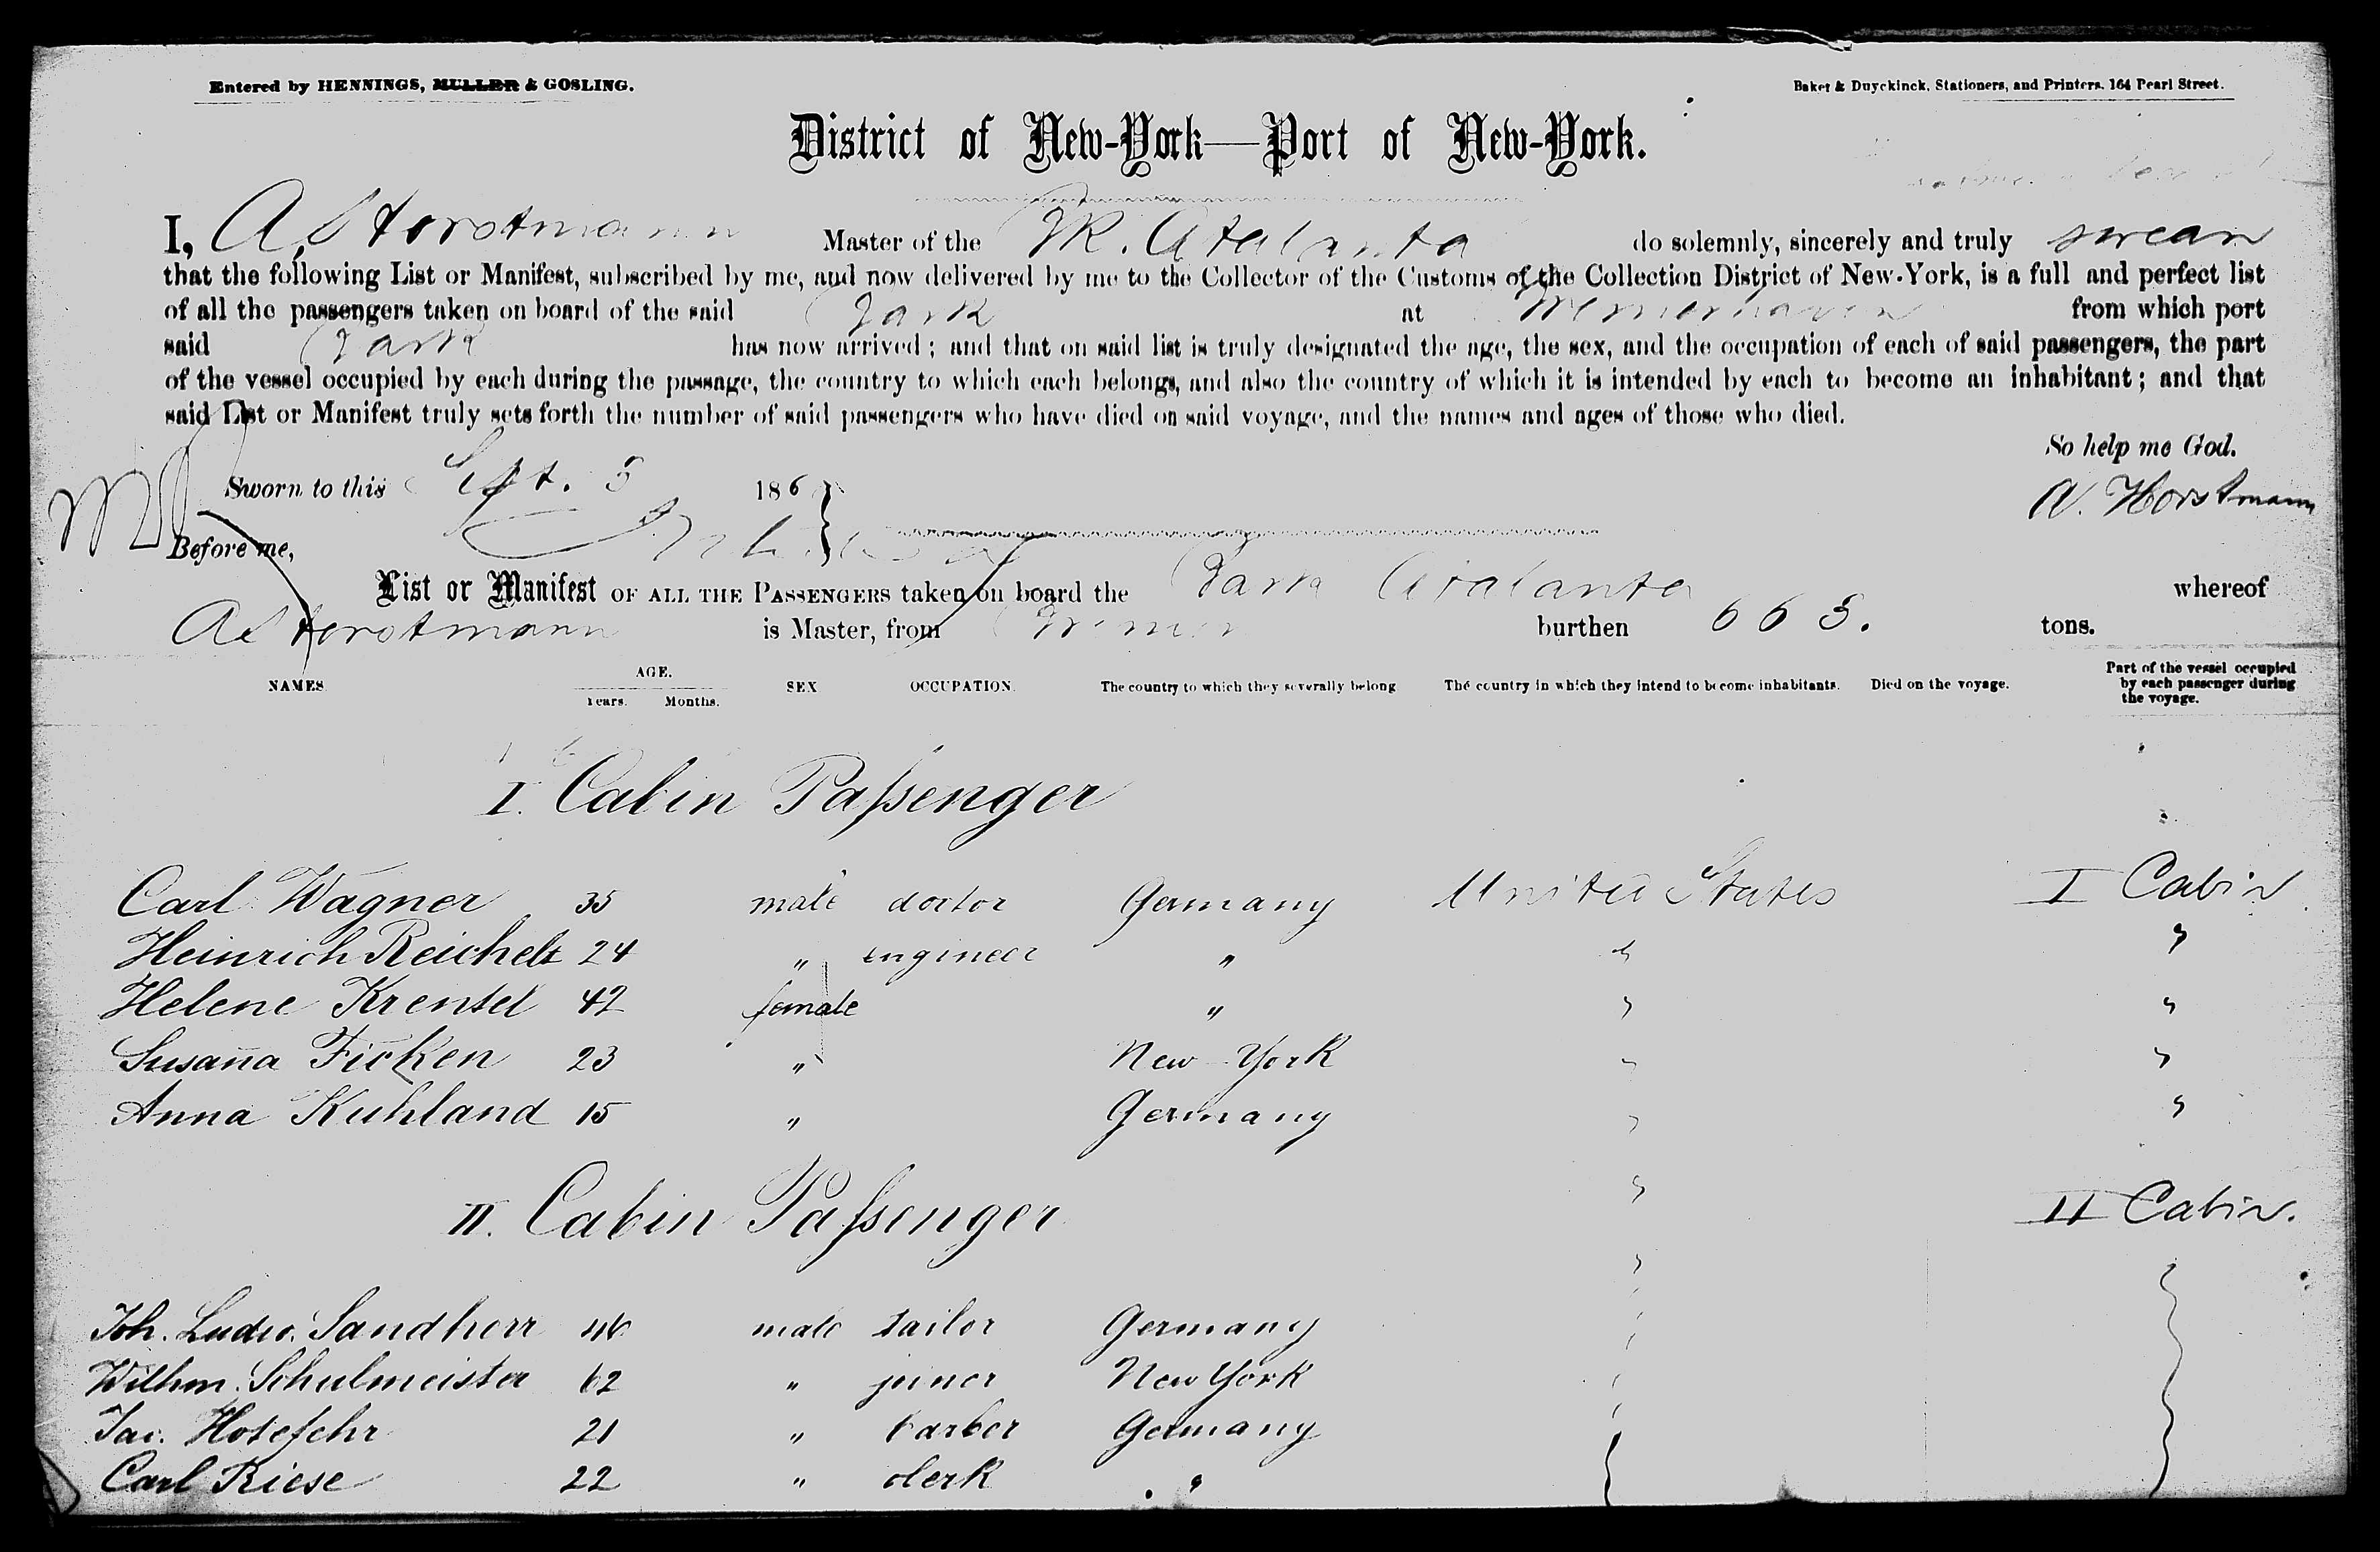 Entered by HENNINGS, MULLER & GOSLING.
Baker & Duyckinck, Stationers, and Printers, 164 Pearl Street.
District of New-York—Port of New-York.
I, A Horstmann Master of the Bk. Atalanta do solemnly, sincerely and truly swear
that the following List or Manifest, subscribed by me, and now delivered by me to the Collector of the Customs of the Collection District of New-York, is a full and perfect list
of all the passengers taken on board of the said Bark at Bremerhaven from which port
said Bark has now arrived; and that on said list is truly designated the age, the sex, and the occupation of each of said passengers, the part
of the vessel occupied by each during the passage, the country to which each belongs, and also the country of which it is intended by each to become an inhabitant; and that
said List or Manifest truly sets forth the number of said passengers who have died on said voyage, and the names and ages of those who died.
So help me God.
Sworn to this Sept. 5 186
A. Horstmann
Before me,
List or Manifest OF ALL THE PASSENGERS taken on board the Bark Atalanta whereof
A Horstmann is Master, from Bremen burthen 665. tons.
NAMES AGE. Years. Months. SEX OCCUPATION. The country to which they severally belong The country in which they intend to become inhabitants. Died on the voyage. Part of the vessel occupied by each passenger during the voyage.
I. Cabin Paſsenger
Carl Wagner 35 male doctor Germany United States I Cabin
Heinrich Reichelt 24 " engineer " " "
Helene Krensel 42 female " " "
Susan̄a Ficken 23 " New York " "
Anna Kuhland 15 " Germany " "
"
II. Cabin Paſsenger II Cabin.
"
Joh. Ludw. Sandherr 46 male tailor Germany
Wilhm. Schulmeister 62 " joiner New York
Jac. Hotefehr 21 " barber Germany
Carl Riese 22 " clerk "